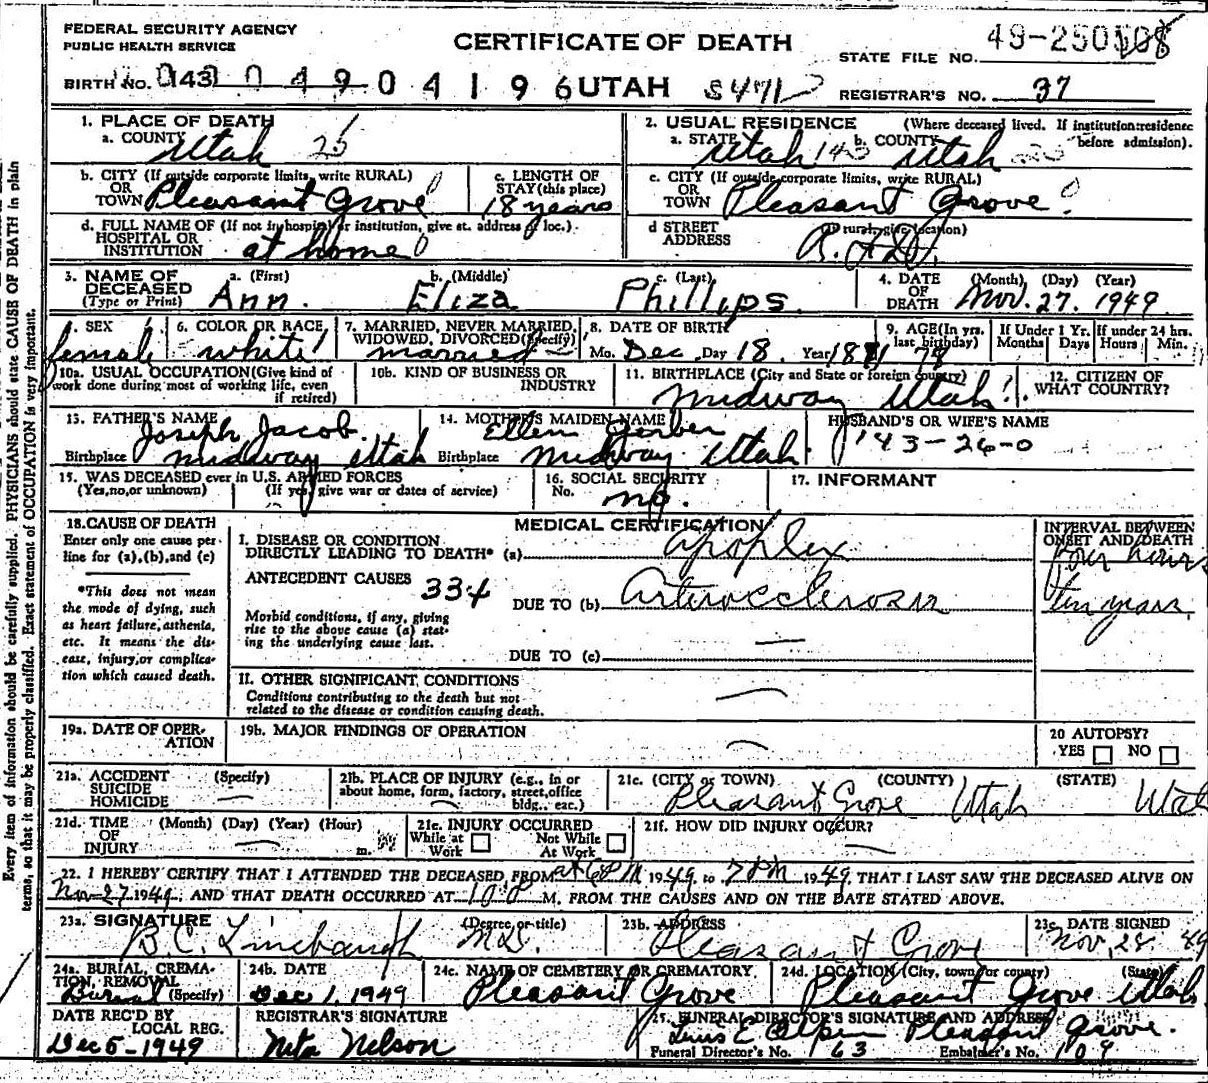 FEDERAL SECURITY AGENCY
PUBLIC HEALTH SERVICE
CERTIFICATE OF DEATH
STATE FILE NO. 49-250
BIRTH NO. 143 0 4 9 0 4 1 9 6 UTAH
REGISTRAR'S NO. 37
1. PLACE OF DEATH
a. COUNTY Utah 25
2. USUAL RESIDENCE (Where deceased lived. If institution:residence before admission).
a. STATE Utah 143 b. COUNTY Utah
b. CITY (If outside corporate limits, write RURAL) OR TOWN Pleasant Grove
c. LENGTH OF STAY (this place) 18 years
c. CITY (If outside corporate limits, write RURAL) OR TOWN Pleasant Grove
d. FULL NAME OF (If not in hospital or institution, give st. address or loc.) HOSPITAL OR INSTITUTION at home
d STREET ADDRESS (If rural, give location)
3. NAME OF DECEASED (Type or Print)
a. (First) Ann b. (Middle) Eliza c. (Last) Phillips
4. DATE OF DEATH (Month) (Day) (Year) Nov. 27. 1949
5. SEX female
6. COLOR OR RACE white
7. MARRIED, NEVER MARRIED, WIDOWED, DIVORCED (Specify) married
8. DATE OF BIRTH Mo. Dec Day 18 Year
9. AGE (In yrs. last birthday) 78
If Under 1 Yr. Months Days
If under 24 hrs. Hours Min.
10a. USUAL OCCUPATION (Give kind of work done during most of working life, even if retired)
10b. KIND OF BUSINESS OR INDUSTRY
11. BIRTHPLACE (City and State or foreign country) Midway Utah
12. CITIZEN OF WHAT COUNTRY?
13. FATHER'S NAME Joseph Jacob
Birthplace Midway Utah
14. MOTHER'S MAIDEN NAME Ellen Gerber
Birthplace Midway Utah.
HUSBAND'S OR WIFE'S NAME
143-26-0
15. WAS DECEASED ever in U.S. ARMED FORCES
(Yes, no, or unknown) (If yes, give war or dates of service)
16. SOCIAL SECURITY No. no.
17. INFORMANT
18. CAUSE OF DEATH
Enter only one cause per line for (a), (b), and (c)
*This does not mean the mode of dying, such as heart failure, asthenia, etc. It means the disease, injury, or complication which caused death.
MEDICAL CERTIFICATION
I. DISEASE OR CONDITION DIRECTLY LEADING TO DEATH* (a) apoplex
ANTECEDENT CAUSES 334
Morbid conditions, if any, giving rise to the above cause (a) stating the underlying cause last.
DUE TO (b)
DUE TO (c)
INTERVAL BETWEEN ONSET AND DEATH
four hours
ten years
II. OTHER SIGNIFICANT CONDITIONS
Conditions contributing to the death but not related to the disease or condition causing death.
19a. DATE OF OPERATION
19b. MAJOR FINDINGS OF OPERATION
20 AUTOPSY?
YES NO
21a. ACCIDENT SUICIDE HOMICIDE (Specify)
21b. PLACE OF INJURY (e.g., in or about home, form, factory, street, office bldg., eac.)
21c. (CITY or TOWN) (COUNTY) (STATE)
Pleasant Grove Utah Utah
21d. TIME OF INJURY (Month) (Day) (Year) (Hour) m.
21e. INJURY OCCURRED
While at Work Not While At Work
21f. HOW DID INJURY OCCUR?
22. I HEREBY CERTIFY THAT I ATTENDED THE DECEASED FROM at 6 PM 1949 to 7 PM 1949 THAT I LAST SAW THE DECEASED ALIVE ON
Nov-27 1949, AND THAT DEATH OCCURRED AT 10 P M, FROM THE CAUSES AND ON THE DATE STATED ABOVE.
23a. SIGNATURE (Degree or title)
B.C. Linebaugh M.D.
23b. ADDRESS
Pleasant Grove
23c. DATE SIGNED
Nov. 28, 49
24a. BURIAL, CREMATION, REMOVAL (Specify) Burial
24b. DATE Dec 1. 1949
24c. NAME OF CEMETERY OR CREMATORY Pleasant Grove
24d. LOCATION (City, town, or county) (State) Pleasant Grove Utah
DATE REC'D BY LOCAL REG. Dec 5-1949
REGISTRAR'S SIGNATURE Neta Nelson
25. FUNERAL DIRECTOR'S SIGNATURE AND ADDRESS
Pleasant Grove.
Funeral Director's No. 163 Embalmer's No. 109
Every item of information should be carefully supplied. PHYSICIANS should state CAUSE OF DEATH in plain
terms, so that it may be properly classified. Exact statement of OCCUPATION is very important.